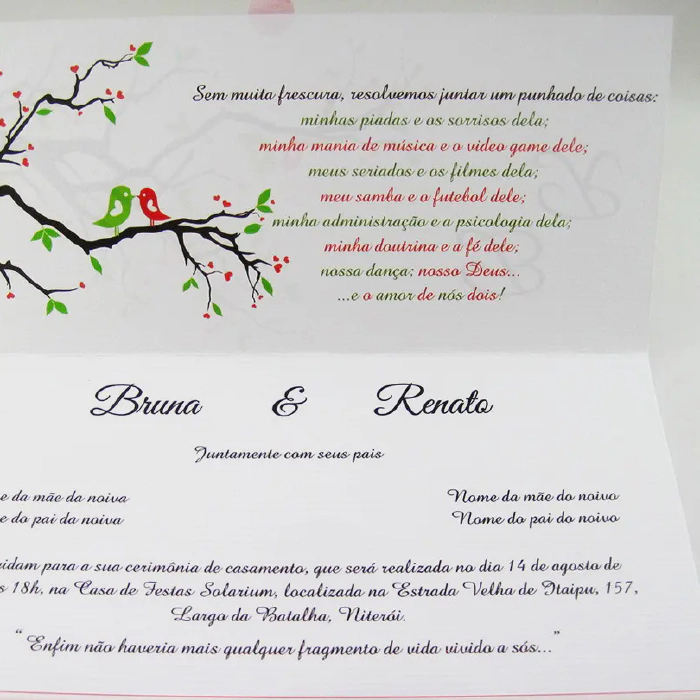 Sem muita frescura, resolvemos juntar um punhado de coisas:
minhas piadas e os sorrisos dela;
minha mania de música e o video game dele;
meus seriados e os filmes dela;
meu samba e o futebol dele;
minha administração e a psicologia dela;
minha doutrina e a fé dele;
nossa dança; nosso Deus...
...e o amor de nós dois!
Bruna & Renato
Juntamente com seus pais
e da mãe da noiva Nome da mãe do noivo
e do pai da noiva Nome do pai do noivo
idam para a sua cerimônia de casamento, que será realizada no dia 14 de agosto de
s 18h, na Casa de Festas Solarium, localizada na Estrada Velha de Itaipu, 157,
Largo da Batalha, Niterói.
“Enfim não haveria mais qualquer fragmento de vida vivido a sós...”